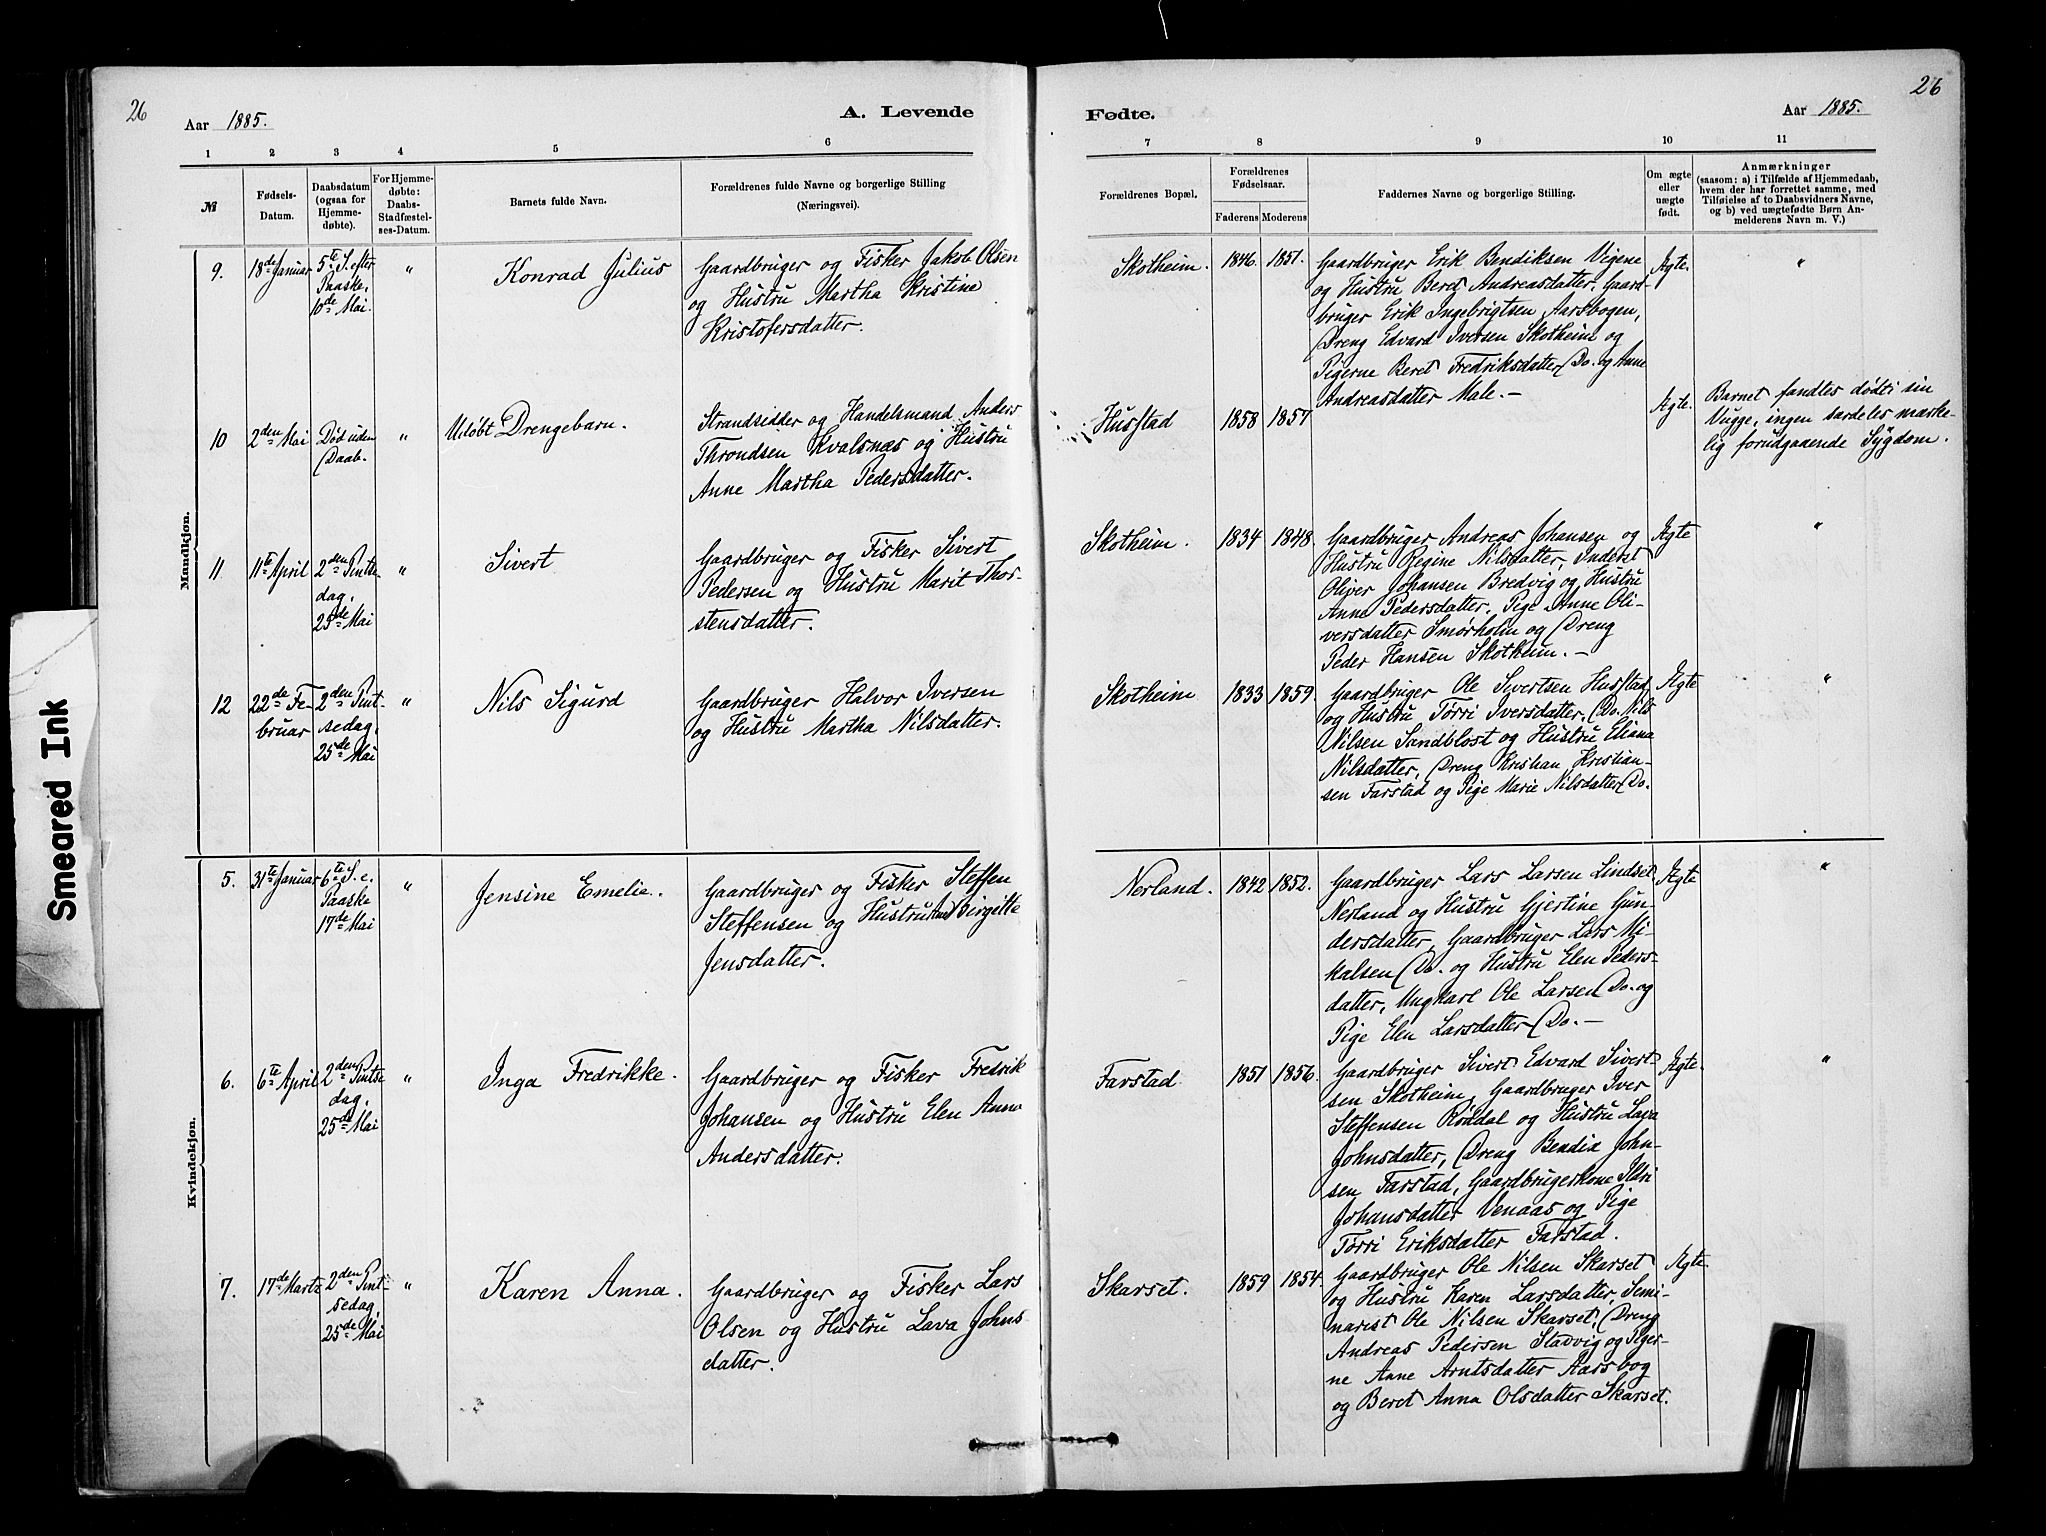 26
Aar 1885.
A. Levende
1 2 3 4 5 6
№
Fødsels-
Datum.
Daabsdatum
(ogsaa for
Hjemme-
døbte).
For Hjemme-
døbte:
Daabs-
Stadfæstel-
ses-Datum.
Barnets fulde Navn.
Forældrenes fulde Navne og borgerlige Stilling
(Næringsvei).
Mandkjøn.
9.
18de Januar
5te S. efter
Paaske,
10de Mai.
"
Konrad Julius
Gaardbruger og Fisker Jakob Olsen
og Hustru Martha Kristine
Kristofersdatter.
10
2den Mai
Død uden
Daab.
"
Udøbt Drengebarn.
Strandsidder og Handelsmand Anders
Throndsen Kvalsnæs og Hustru
Anne Martha Pedersdatter.
11
11te April
2den Pintse
dag,
25de Mai
"
Sivert
Gaardbruger og Fisker Sivert
Pedersen og Hustru Marit Thor-
stensdatter.
12
22de Fe-
bruar
2den Pint-
sedag,
25de Mai
"
Nils Sigurd
Gaardbruger Halvor Iversen
og Hustru Martha Nilsdatter.
Kvindekjøn.
5.
31te Januar
6te S. e.
Paaske
17de Mai
"
Jensine Emelie.
Gaardbruger og Fisker Steffen
Steffensen og Hustru Birgitte
Jensdatter.
6.
6te April
2den Pintse
dag,
25de Mai
"
Inga Fredrikke.
Gaardbruger og Fisker Fredrik
Johansen og Hustru Elen Anna
Andersdatter.
7.
17de Martz
2den Pint-
sedag,
25de Mai
"
Karen Anna.
Gaardbruger og Fisker Lars
Olsen og Hustru Lava Johns-
datter.
26
Fødte.
Aar 1885.
7 8 9 10 11
Forældrenes Bopæl.
Forældrenes
Fødselsaar.
Faderens Moderens
Faddernes Navne og borgerlige Stilling.
Om ægte
eller
uægte
født.
Anmærkninger
(saasom: a) i Tilfælde af Hjemmedaab,
hvem der har forrettet samme, med
Tilføielse af to Daabsvidners Navne,
og b) ved uægtefødte Børn An-
melderens Navn m. V.)
Skotheim. 1846. 1851.
Gaardbruger Erik Bendiksen Vigene
og Hustru Beret Andreasdatter, Gaard-
bruger Erik Ingebrigtsen Aarsbogen,
Dreng Edvard Iversen Skotheim og
Pigerne Beret Fredriksdatter Do. og Anne
Andreasdatter Male. —
Ægte.
"
Husstad 1858 1857
Ægte.
Barnet fandtes dødt i sin
Vugge, ingen særdeles mærke-
lig forudgaaende Sygdom.
Skotheim. 1834 1848
Gaardbruger Andreas Johansen og
Hustru Regine Nilsdatter, Inderst
Oliver Johansen Bredvig og Hustru
Anne Pedersdatter, Pige Anne Oli-
versdatter Smørholm og Dreng
Peder Hansen Skotheim. —
Ægte
"
Skotheim 1833 1859.
Gaardbruger Ole Sivertsen Husstad
og Hustru Torri Iversdatter, Do. Nils
Nilsen Sandblost og Hustru Eliana
Nilsdatter, Dreng Kristian Kristian-
sen Farstad og Pige Marie Nilsdatter Do.
Ægte
"
Nerland. 1842 1852.
Gaardbruger Lars Larsen Lindset
Nerland og Hustru Gjertine Gun-
dersdatter, Gaardbruger Lars Mi-
kalsen Do. og Hustru Elen Peders-
datter, Ungkarl Ole Larsen Do. og
Pige Elen Larsdatter Do. —
Ægte
"
Farstad. 1851 1856.
Gaardbruger Sivert Edvard Sivert-
sen Skotheim, Gaardbruger Iver
Steffensen Röddal og Hustru Lava
Johnsdatter, Dreng Bendix John-
sen Farstad, Gaardbrugerkone Ildri
Johansdatter Venaas og Pige
Torri Eriksdatter Farstad.
Ægte.
"
Skarset. 1859 1854.
Gaardbruger Ole Nilsen Skarset
og Hustru Karen Larsdatter, Semi-
narist Ole Nilsen Skarset, Dreng
Andreas Pedersen Stadvig og Piger-
ne Anne Arntsdatter Aarsbog
og Beret Anna Olsdatter Skarset.
Ægte.
Smeared Ink